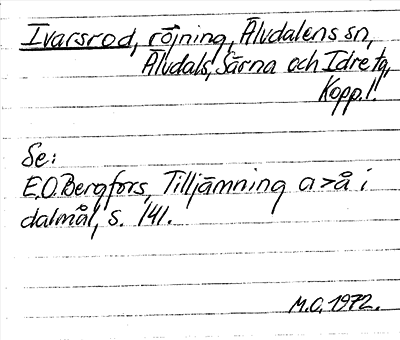 Ivarsrod, röjning, Älvdalens sn,
Älvdals, Särna och Idre tg,
Kopp. l.
Se:
E.O. Bergfors, Tilljämning a>å i
dalmål, s. 141.
M.O. 1972.